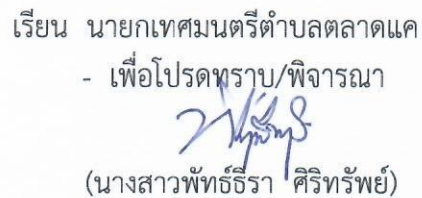 เรียน นายกเทศมนตรีตำบลตลาดแค
- เพื่อโปรดทราบ/พิจารณา
(นางสาวพัทธ์ธีรา ศิริทรัพย์)